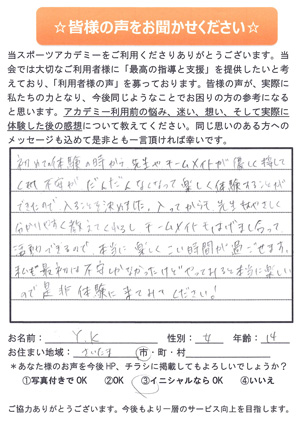 ☆皆様の声をお聞かせください☆
当スポーツアカデミーをご利用くださりありがとうございます。当
会では大切なご利用者様に「最高の指導と支援」を提供したいと考
えており、「利用者様の声」を募っております。皆様の声が、実際に
私たちの力となり、今後同じようなことでお困りの方の参考になる
と思います。アカデミー利用前の悩み、迷い、想い、そして実際に
体験した後の感想について教えてください。同じ思いのある方への
メッセージも込めて是非とも一言頂ければ幸いです。
初めての体験の時から先生やチームメイトが優しく接して
くれ不安がだんだんなくなって楽しく体験することが
できたので入ることを決めました。入ってからも先生はやさしく
分かりやすく教えてくれるしチームメイトもはげまし合って
活動できるので本当に楽しくこい時間が過ごせます。
私も最初は不安しかなかったけどやってみると本当に楽しい
ので是非体験に来てみてください!
お名前: Y.K 性別: 女 年齢: 14
お住まい地域: さいたま 市・町・村
*あなた様のお声を今後HP、チラシに掲載してもよろしいでしょうか?
①写真付きでOK ②OK ③イニシャルならOK ④いいえ
ご協力ありがとうございます。今後もより一層のサービス向上を目指します。